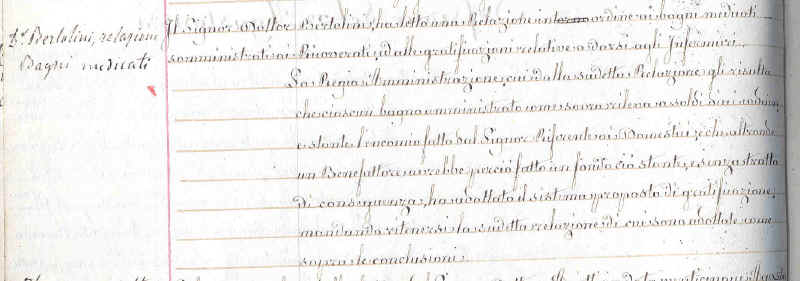 Dr Bertolini, relazione
Bagni medicati
Il Signor Dottor Bertolini, ha letto una Relazione in ordine ai bagni medicati
somministrati ai Ricoverati, ed alle gratificazioni relative a darsi agli Infermieri.
La Regia Amministrazione, cui dalla sudetta Relazione gli risulta
che ciascun bagno amministrato come sovra rileva a soldi
e stante l'encomio fatto dal Signor Riferente ai Domestici, e che altronde
un Benefattore avrebbe perciò fatto un fondo, ciò stante, e senza tratto
di conseguenza, ha adottato il sistema proposto di gratificazione,
mandando ritenersi la sudetta relazione, di cui sono adottate come
sopra le conclusioni.